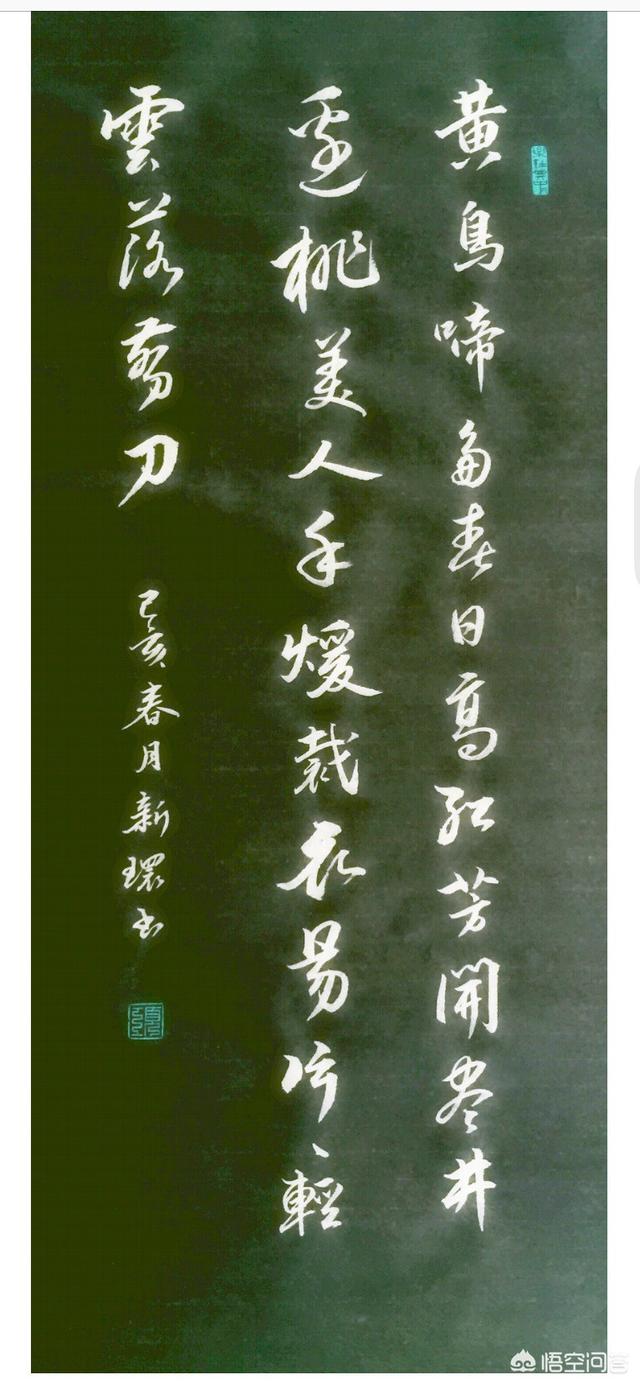 黄鳥啼多春日高紅芳開盡井
邊桃美人手煖裁衣易片〻輕
雲落翦刀 己亥春月新環書
悟空问答